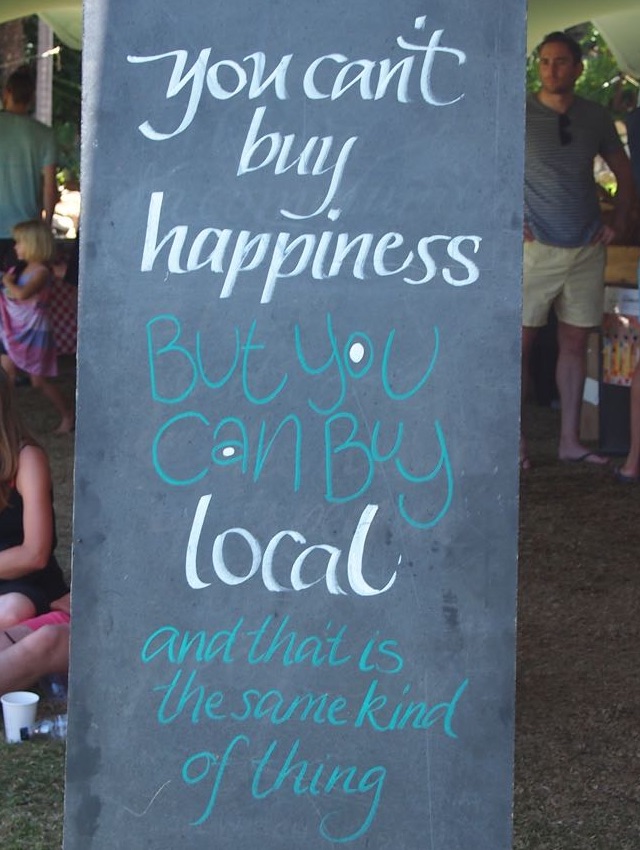 you can't
buy
happiness
But you
can Buy
local
and that is
the same kind
of thing